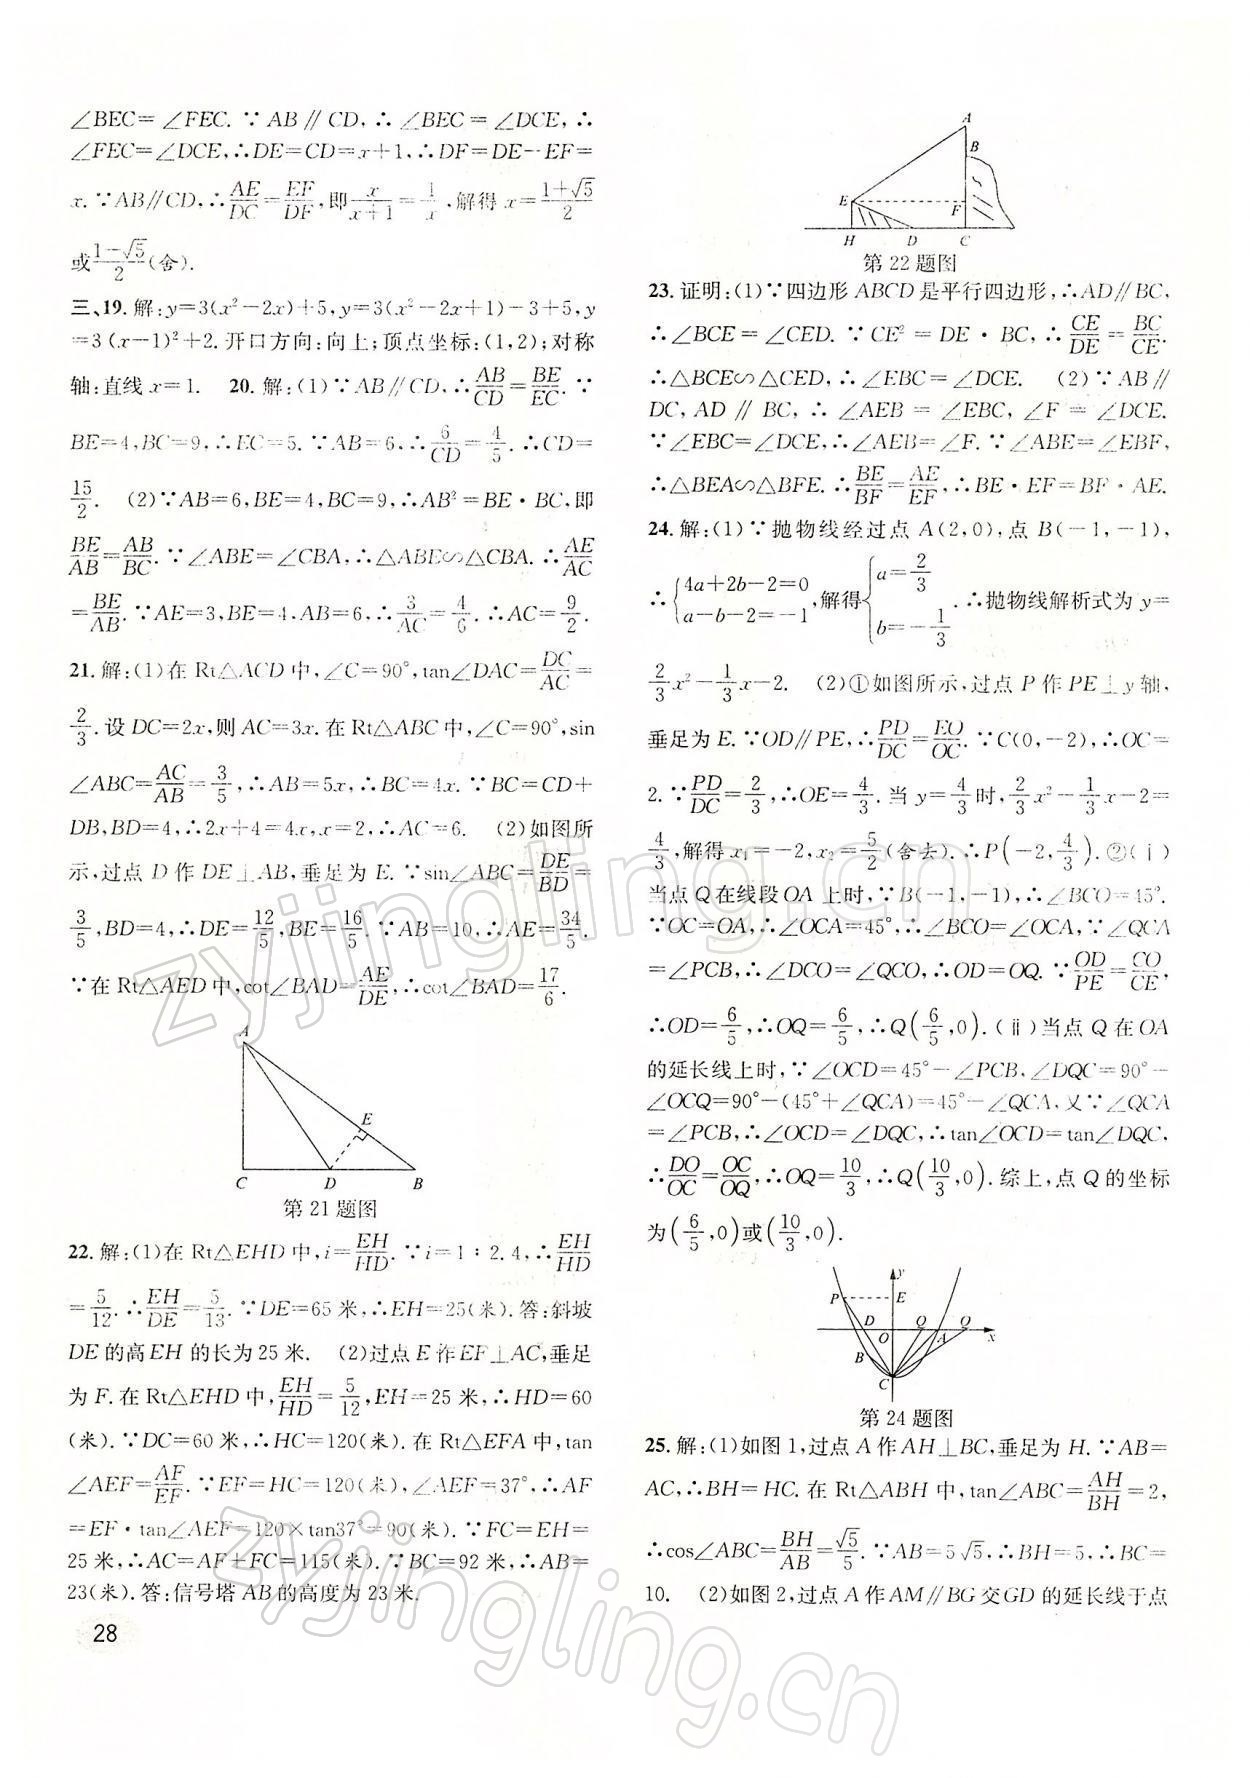 ∠BEC=∠FEC. ∵AB∥CD,∴∠BEC=∠DCE,∴
∠FEC=∠DCE,∴DE=CD=x+1,∴DF=DE-EF=
x. ∵AB∥CD,∴AE/DC=EF/DF,即x/(x+1)=1/x,解得x=(1+√5)/2
或(1-√5)/2(舍).
三、19.解:y=3(x²-2x)+5,y=3(x²-2x+1)-3+5,y
=3(x-1)²+2.开口方向:向上;顶点坐标:(1,2);对称
轴:直线x=1. 20.解:(1)∵AB∥CD,∴AB/CD=BE/EC. ∵
BE=4,BC=9,∴EC=5. ∵AB=6,∴6/CD=4/5,∴CD=
15/2. (2)∵AB=6,BE=4,BC=9,∴AB²=BE·BC,即
BE/AB=AB/BC. ∵∠ABE=∠CBA,∴△ABE∽△CBA. ∴AE/AC
=BE/AB. ∵AE=3,BE=4,AB=6,∴3/AC=4/6. ∴AC=9/2.
21.解:(1)在Rt△ACD中,∠C=90°,tan∠DAC=DC/AC=
2/3.设DC=2x,则AC=3x.在Rt△ABC中,∠C=90°,sin
∠ABC=AC/AB=3/5,∴AB=5x,∴BC=4x. ∵BC=CD+
DB,BD=4,∴2x+4=4x,x=2,∴AC=6. (2)如图所
示,过点D作DE⊥AB,垂足为E. ∵sin∠ABC=DE/BD=
3/5,BD=4,∴DE=12/5,BE=16/5. ∵AB=10,∴AE=34/5.
∵在Rt△AED中,cot∠BAD=AE/DE,∴cot∠BAD=17/6.
A
E
C D B
第21题图
22.解:(1)在Rt△EHD中,i=EH/HD. ∵i=1∶2.4,∴EH/HD
=5/12. ∴EH/DE=5/13. ∵DE=65米,∴EH=25(米).答:斜坡
DE的高EH的长为25米. (2)过点E作EF⊥AC,垂足
为F.在Rt△EHD中,EH/HD=5/12,EH=25米,∴HD=60
(米). ∵DC=60米,∴HC=120(米).在Rt△EFA中,tan
∠AEF=AF/EF. ∵EF=HC=120(米),∠AEF=37°,∴AF
=EF·tan∠AEF=120×tan37°=90(米). ∵FC=EH=
25米,∴AC=AF+FC=115(米). ∵BC=92米,∴AB=
23(米).答:信号塔AB的高度为23米.
28
A
B
E F
H D C
第22题图
23.证明:(1)∵四边形ABCD是平行四边形,∴AD∥BC,
∴∠BCE=∠CED. ∵CE²=DE·BC,∴CE/DE=BC/CE.
∴△BCE∽△CED,∴∠EBC=∠DCE. (2)∵AB∥
DC,AD∥BC,∴∠AEB=∠EBC,∠F=∠DCE.
∵∠EBC=∠DCE,∴∠AEB=∠F. ∵∠ABE=∠EBF,
∴△BEA∽△BFE. ∴BE/BF=AE/EF,∴BE·EF=BF·AE.
24.解:(1)∵抛物线经过点A(2,0),点B(-1,-1),
∴{4a+2b-2=0 a-b-2=-1,解得{a=2/3 b=-1/3. ∴抛物线解析式为y=
2/3x²-1/3x-2. (2)①如图所示,过点P作PE⊥y轴,
垂足为E. ∵OD∥PE,∴PD/DC=EO/OC. ∵C(0,-2),∴OC=
2. ∵PD/DC=2/3,∴OE=4/3.当y=4/3时,2/3x²-1/3x-2=
4/3,解得x₁=-2,x₂=5/2(舍去). ∴P(-2,4/3).②(ⅰ)
当点Q在线段OA上时,∵B(-1,-1),∴∠BCO=45°.
∵OC=OA,∴∠OCA=45°,∴∠BCO=∠OCA,∵∠QCA
=∠PCB,∴∠DCO=∠QCO,∴OD=OQ. ∵OD/PE=CO/CE,
∴OD=6/5,∴OQ=6/5,∴Q(6/5,0).(ⅱ)当点Q在OA
的延长线上时,∵∠OCD=45°-∠PCB,∠DQC=90°-
∠OCQ=90°-(45°+∠QCA)=45°-∠QCA,又∵∠QCA
=∠PCB,∴∠OCD=∠DQC,∴tan∠OCD=tan∠DQC,
∴DO/OC=OC/OQ,∴OQ=10/3,∴Q(10/3,0).综上,点Q的坐标
为(6/5,0)或(10/3,0).
y
P E
D Q Q
O A x
B
C
第24题图
25.解:(1)如图1,过点A作AH⊥BC,垂足为H. ∵AB=
AC,∴BH=HC.在Rt△ABH中,tan∠ABC=AH/BH=2,
∴cos∠ABC=BH/AB=√5/5. ∵AB=5√5,∴BH=5,∴BC=
10. (2)如图2,过点A作AM∥BG交GD的延长线于点
zyjingling.cn
zyjingling.cn